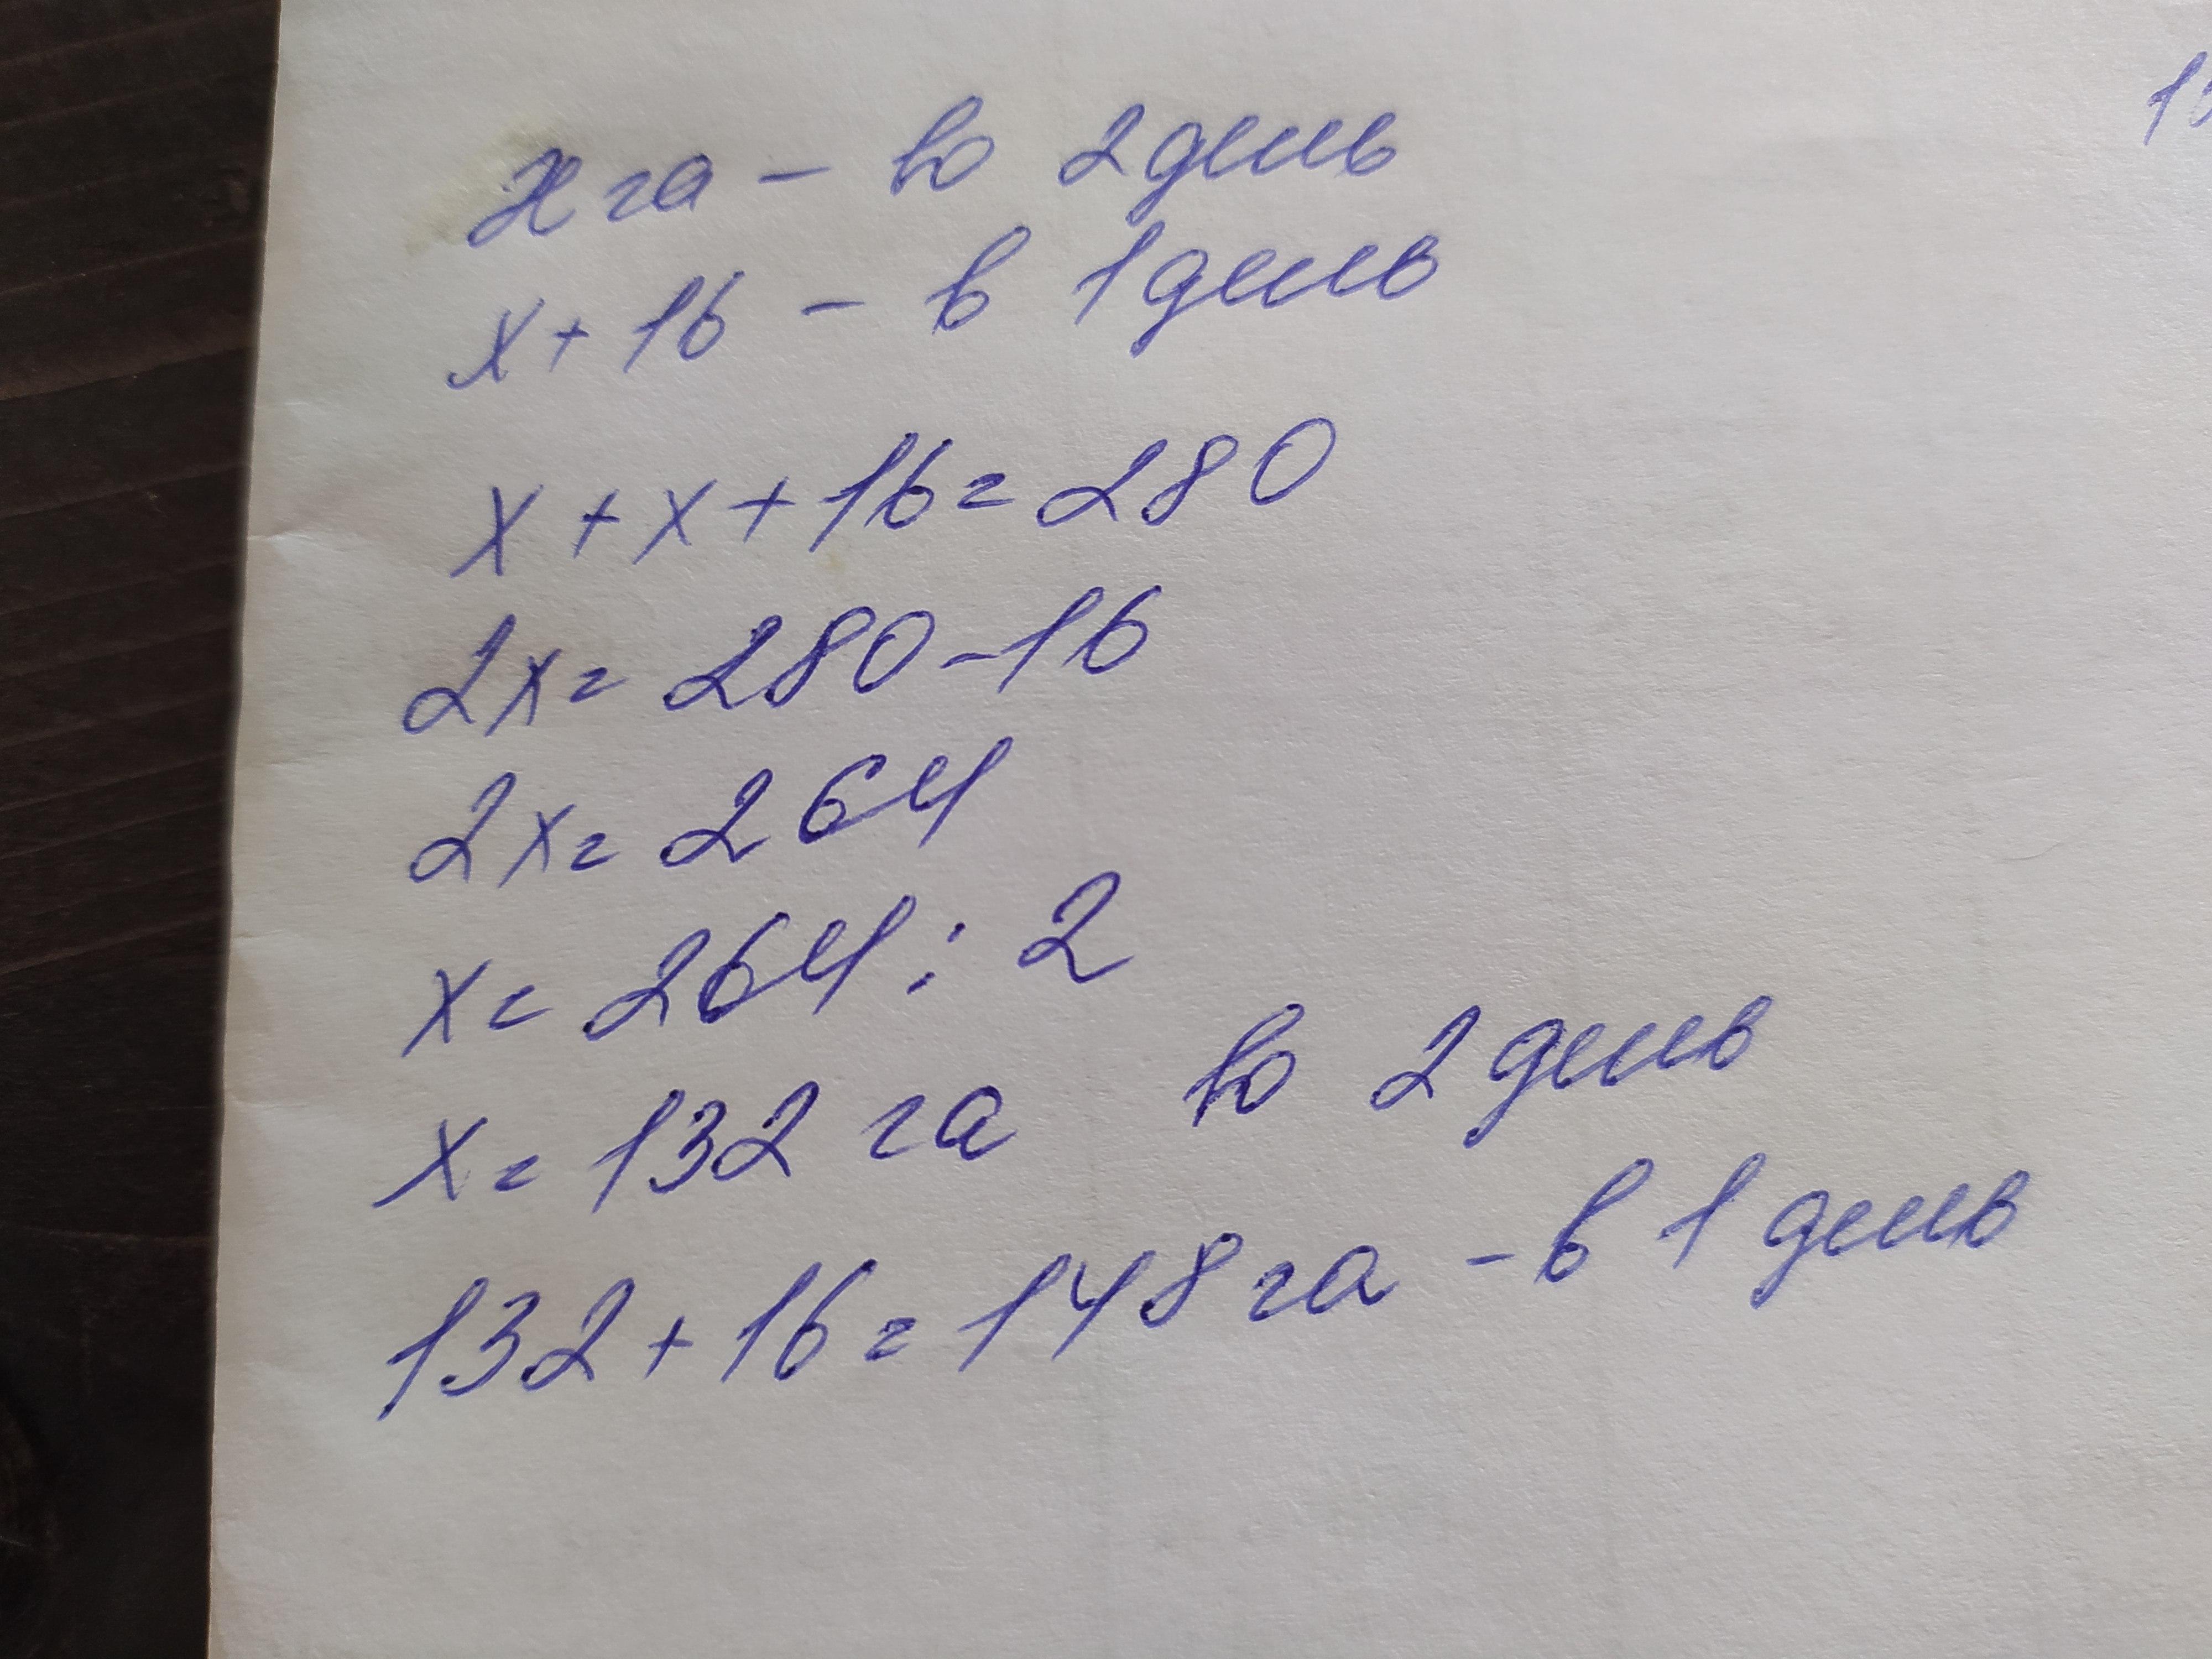 x га – во 2 день
x + 16 – в 1 день
x + x + 16 = 280
2x = 280 – 16
2x = 264
x = 264 : 2
x = 132 га во 2 день
132 + 16 = 148 га – в 1 день